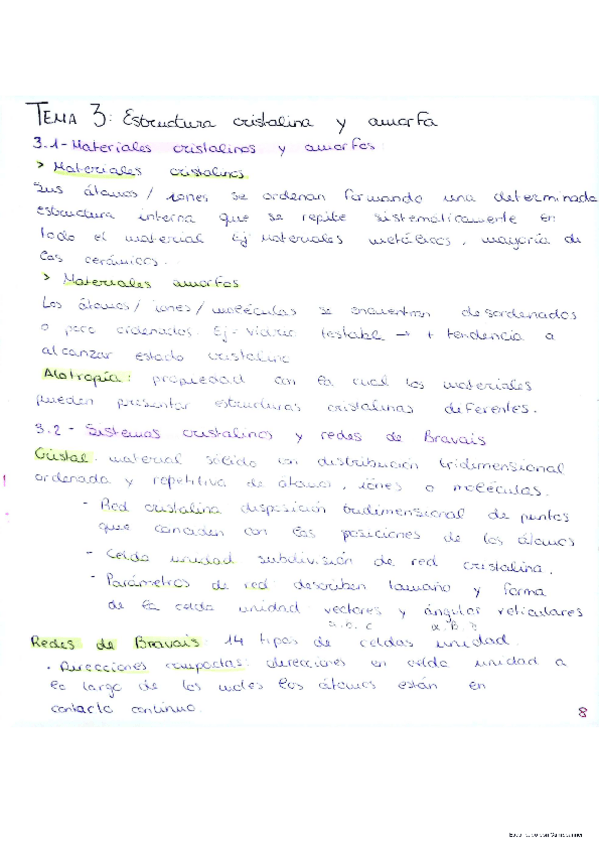 TEMA 3: Estructura cristalina y amorfa
3.1-Materiales cristalinos y amorfos
> Materiales cristalinos
Sus átomos / iones se ordenan formando una determinada
estructura interna que se repite sistemáticamente en
todo el material Ej Materiales metálicos, mayoría de
los cerámicos.
> Materiales amorfos
Los átomos / iones / moléculas se encuentran desordenados
o poco ordenados. Ej: vidrio → + tendencia a
alcanzar estado cristalino
Alotropía: propiedad con la cual los materiales
pueden presentar estructuras cristalinas diferentes.
3.2 - Sistemas cristalinos y redes de Bravais
Cristal: material sólido con distribución tridimensional
ordenada y repetitiva de átomos, iones o moléculas.
- Red cristalina disposición tridimensional de puntos
que coinciden con las posiciones de los átomos
- Celda unidad subdivisión de red cristalina.
- Parámetros de red: describen tamaño y forma
de la celda unidad vectores y ángulos
a. b. c
Redes de Bravais: 14 tipos de celdas unidad.
· Direcciones compactas: direcciones en celda unidad a
lo largo de las cuales los átomos están en
contacto continuo.
8